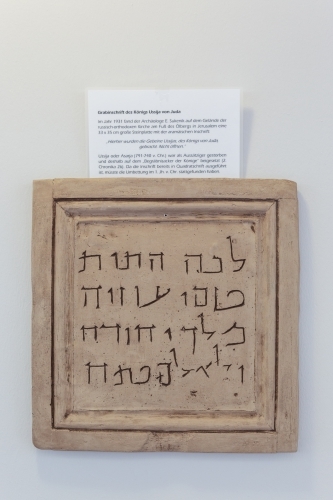 Grabinschrift des Königs Usija von Juda
Im Jahr 1931 fand der Archäologe E. Sukenik auf dem Gelände der
russisch-orthodoxen Kirche am Fuß des Ölbergs in Jerusalem eine
cm große Steinplatte mit der aramäischen Inschrift:
„Hierher wurden die Gebeine Usijas, des Königs von Juda,
gebracht. Nicht öffnen."
Usija oder Asarja v. Chr.) war als Aussätziger gestorben
und deshalb auf dem „Begräbnisacker der Könige" beigesetzt (2.
Chronika 26). Da die Inschrift bereits in Quadratschrift ausgeführt
ist, müsste die Umbettung im 1. Jh. v. Chr. stattgefunden haben.
לכה התית
טמי עוזיה
מלך יהודה
ולא למפתח